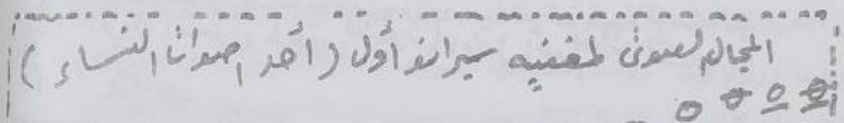 المجال الصوتى لمغنيه سبرانو أول (أحد اصوات النساء)